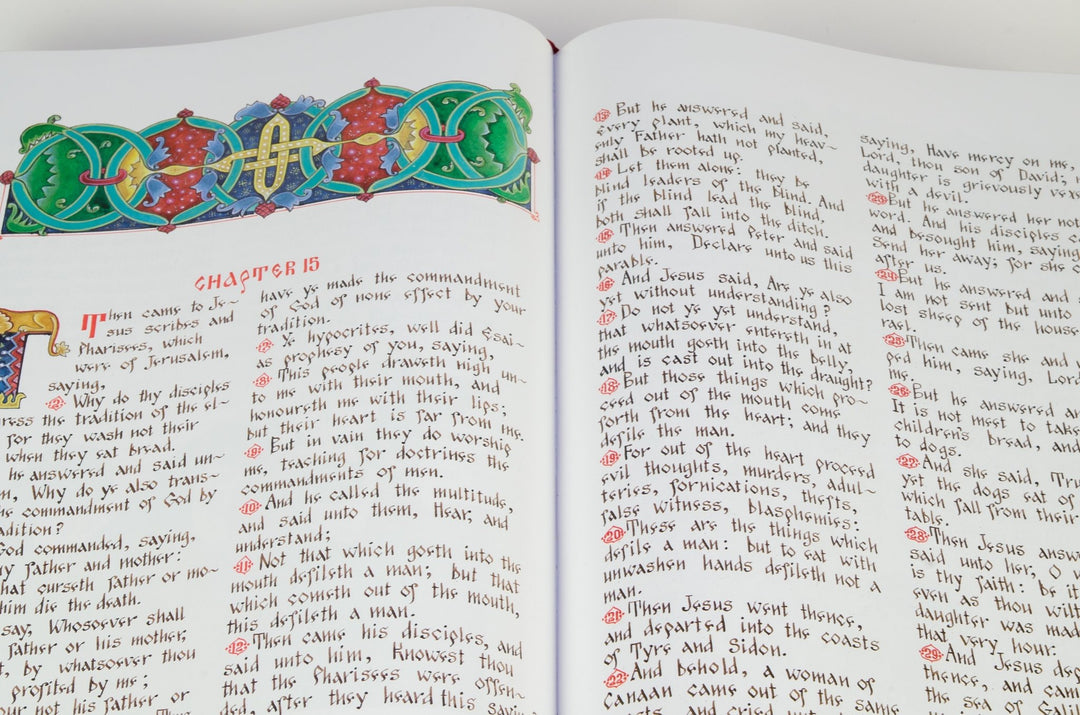 CHAPTER 15
Then came to Je~
sus scribes and
Pharisees, which
were of Jerusalem,
saying,
2 Why do thy disciples
ress the tradition of the el~
for they wash not their
when they eat bread.
he answered and said un~
m, Why do ye also trans~
he commandment of God by
adition?
God commanded, saying,
y father and mother:
hat curseth father or mo~
him die the death.
say, Whosoever shall
father or his mother,
t, by whatsoever thou
profited by me;
our not his father or
have ye made the commandment
of God of none effect by your
tradition.
7 Ye hypocrites, well did Esai~
as prophesy of you, saying,
8 This people draweth nigh un~
to me with their mouth, and
honoureth me with their lips;
but their heart is far from me.
9 But in vain they do worship
me, teaching for doctrines the
commandments of men.
10 And he called the multitude,
and said unto them, Hear, and
understand;
11 Not that which goeth into the
mouth defileth a man; but that
which cometh out of the mouth,
this defileth a man.
12 Then came his disciples, and
said unto him, Knowest thou
that the Pharisees were offen~
ded, after they heard this sayin
13 But he answered and said,
every plant, which my heav~
enly Father hath not planted,
shall be rooted up.
14 Let them alone: they be
blind leaders of the blind. And
if the blind lead the blind,
both shall fall into the ditch.
15 Then answered Peter and said
unto him, Declare unto us this
parable.
16 And Jesus said, Are ye also
yet without understanding?
17 Do not ye yet understand,
that whatsoever entereth in at
the mouth goeth into the belly,
and is cast out into the draught?
18 But those things which pro~
ceed out of the mouth come
forth from the heart; and they
defile the man.
19 For out of the heart proceed
evil thoughts, murders, adul~
teries, fornications, thefts,
false witness, blasphemies:
20 These are the things which
defile a man: but to eat with
unwashen hands defileth not a
man.
21 Then Jesus went thence,
and departed into the coasts
of Tyre and Sidon.
22 And behold, a woman of
Canaan came out of the same
saying, Have mercy on me,
Lord, thou son of David;
daughter is grievously vexe
with a devil.
23 But he answered her not
word. And his disciples c
and besought him, saying
Send her away; for she c
after us.
24 But he answered and s
I am not sent but unto
lost sheep of the house
rael.
25 Then came she and
ped him, saying, Lord
me.
26 But he answered an
It is not meet to take
children's bread, and
to dogs.
27 And she said, Tru
yet the dogs eat of
which fall from their
table.
28 Then Jesus answ
said unto her, O w
is thy faith: be it
even as thou wilt
daughter was mad
that very hour.
29 And Jesus dep
thence, and cam
the sea of Galil